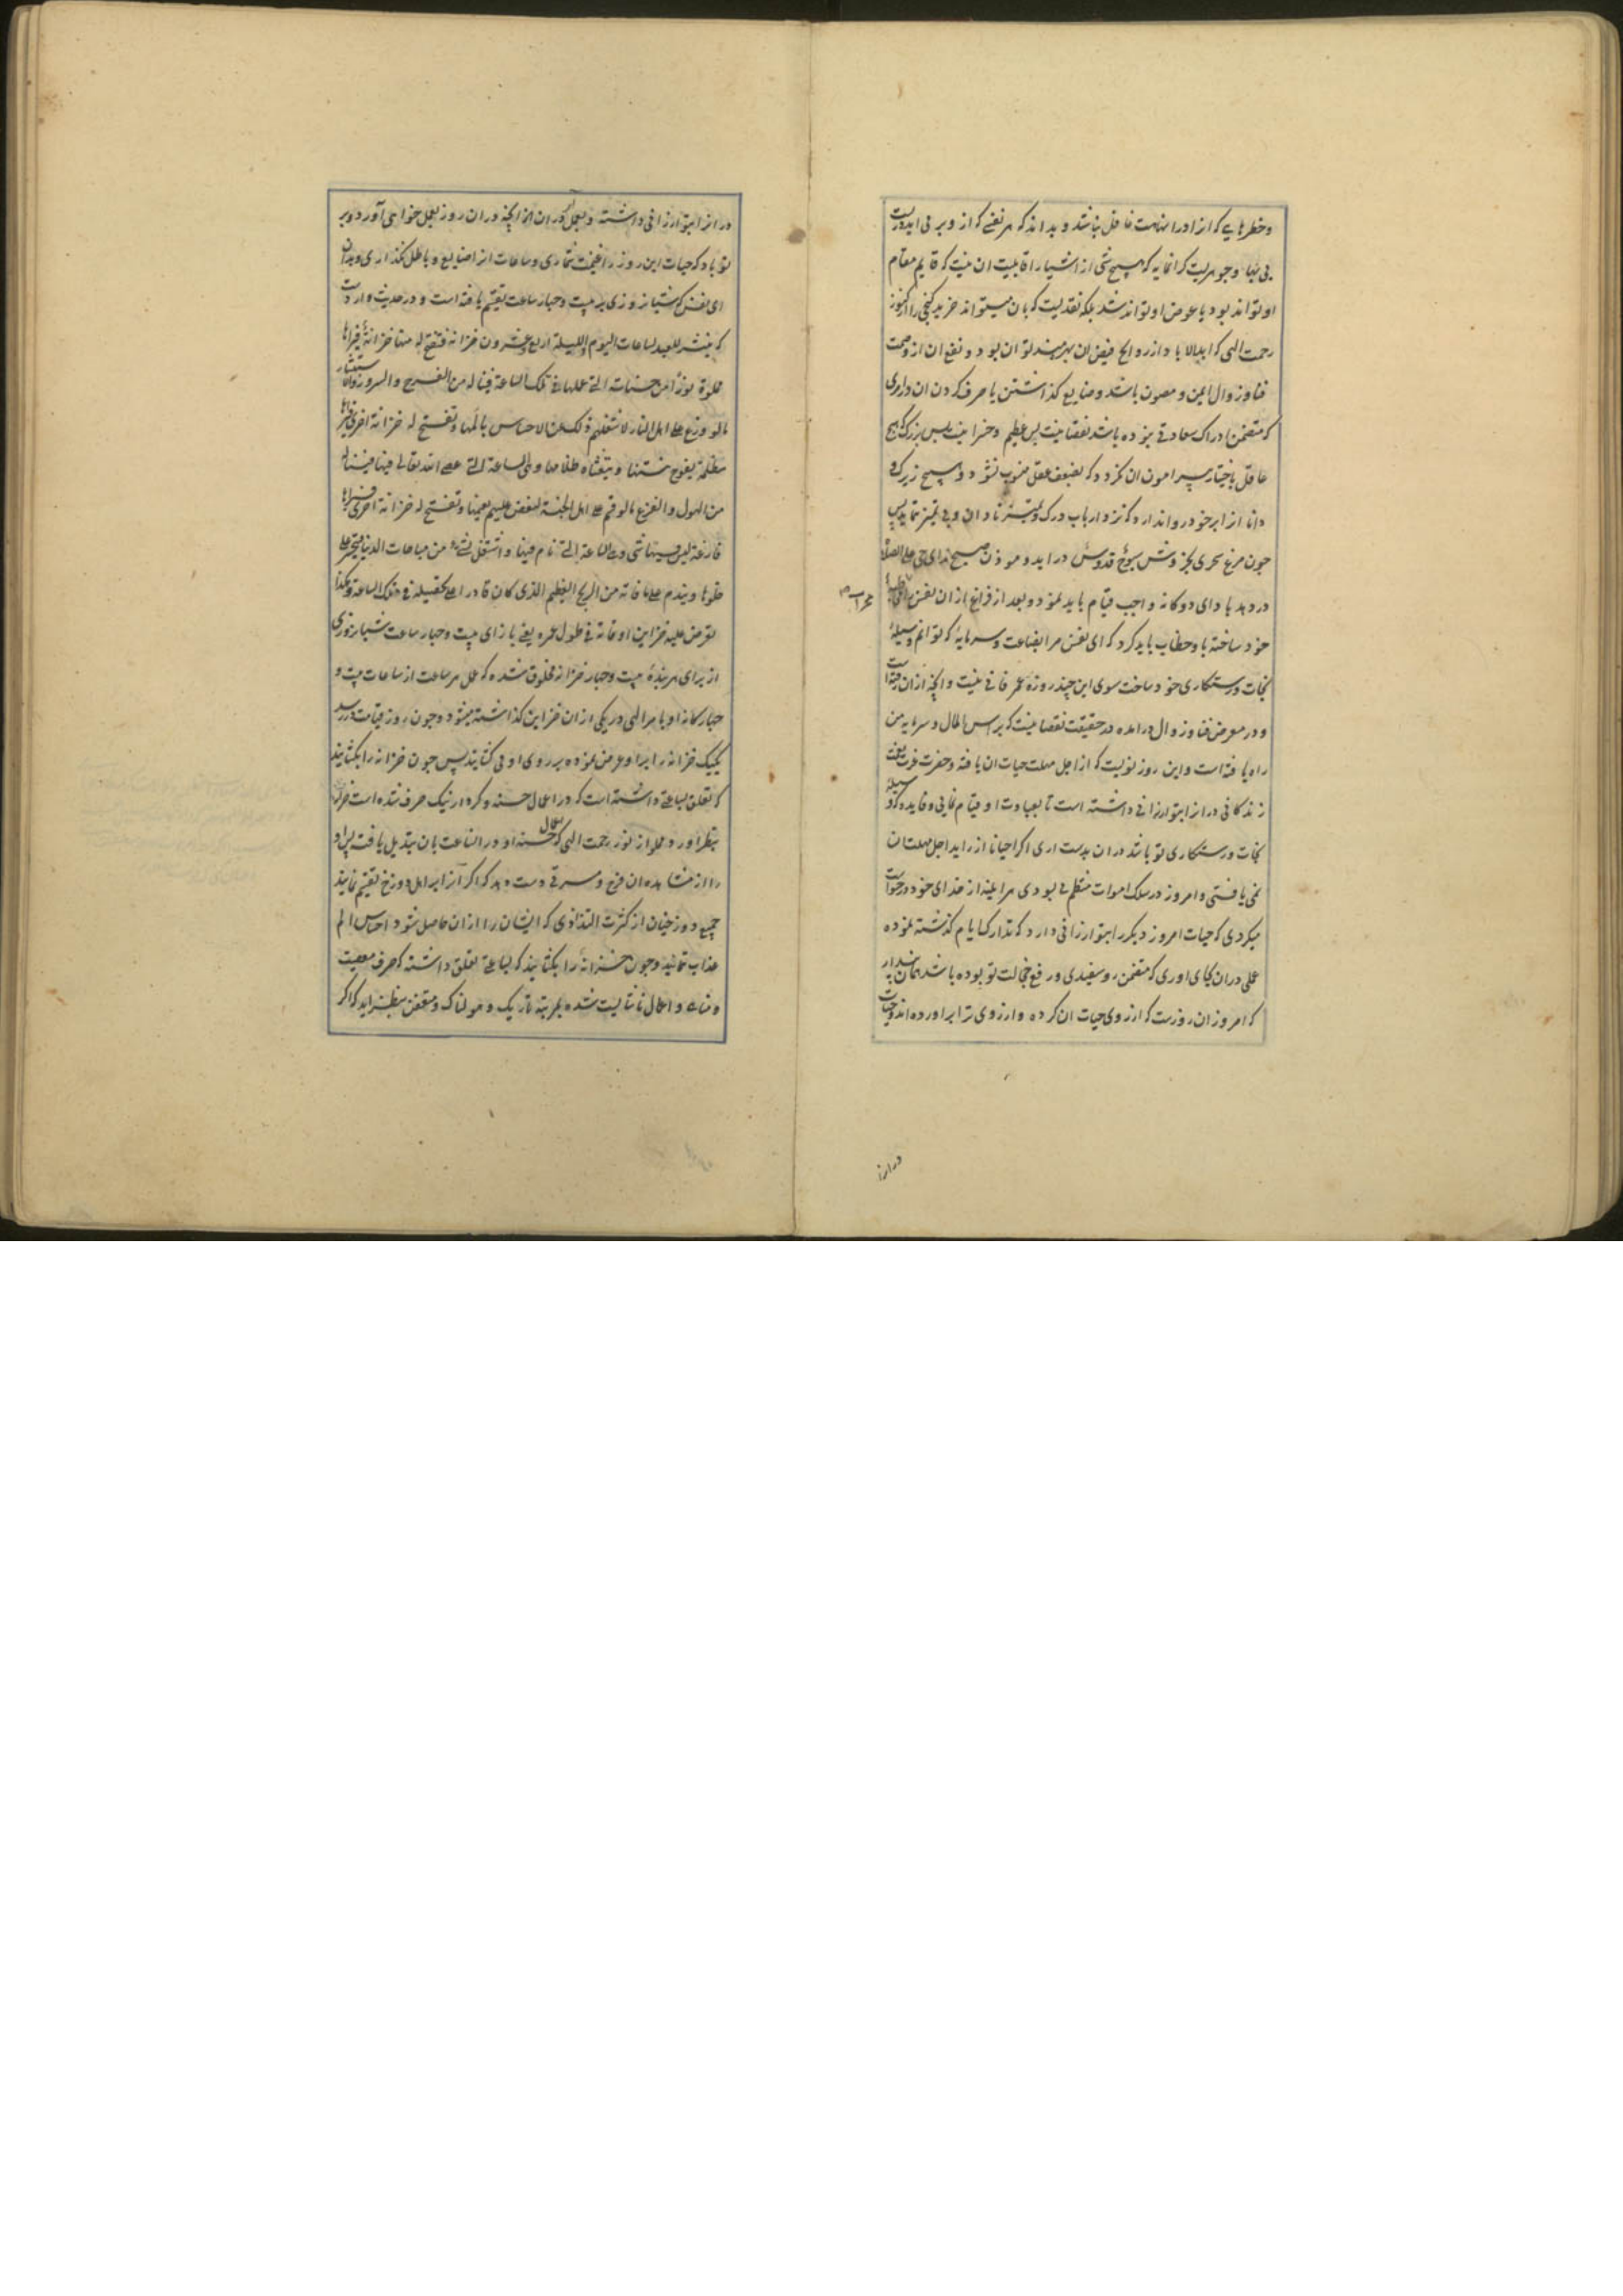 وخطرهایی که از او را نهایت غافل نباشد و بداند که هر نفسی که از وی برمی اید دریست
بی بها و جوهریست کرانمایه که هیچ شی از اشیا را قابلیت ان نیست که قایم مقام
او تواند بود یا عوض او تواند شد بلکه نقدیست که بان میتواند خرید کنجی را از کنوز
رحمت الهی که ابدالاباد از روایح فیض ان بهره مند توان بود و نفع ان از وصمت
فنا و زوال ایمن و مصون باشد و ضایع کذاشتن یا صرف کردن ان در امری
که متضمن ادراک سعادتی نبوده باشد نقصانیست بس عظیم و خسرانیست بس بزرک که هیچ
عاقل باختیار پیرامون ان نکردد که بضعف عقل منسوب نشود و هیچ زیرک و
دانا از ابر خود روا ندارد که نزد ارباب درک و تمیز نادان و بی تمیز نماید پس
چون مرغ سحری بخروش سبوح قدوس دراید و موذن صبح ندای حی علی الصلوة
در دهد بادای دوکانه واجب قیام باید نمود و بعد از فراغ ازان نفس را مخاطب
محراب
خود ساخته با و خطاب باید کرد که ای نفس مرا بضاعت و سرمایه که توانم وسیلهٔ
نجات و رستکاری خود ساخت سوی این چند روزه عمر فانی نیست و انچه ازان رفته است
و در معرض فنا و زوال درامده در حقیقت نقصانیست که براس المال و سرمایه من
راه یافته است و این روز نویست که از اجل مهلت حیات ان یافته و حضرت عزت بعت
زندکانی دران ابتو ارزانی داشته است تا بعبادت او قیام نمایی و فایده که وسیله
نجات و رستکاری تو باشد دران بدست اری اکر احیانا از راید اجل مهلت ان
نمی یافتی و امروز در سلک اموات منتظم می بودی هراینه از خدای خود درخواست
میکردی که حیات امروز دیکر را بتو ارزانی دارد که تدارک ایام کذشته نموده
عملی دران بجای اوری که متضمن روسفیدی و رفع خجالت تو بوده باشد همان پندار
که امروز ان روزست که ارزوی حیات ان کرده و ارزوی ترا براورده اند و حیات
درانرا
درانرا بتو ارزانی داشته و بعمل اوران انچه دران روز بعمل خواهی آورد و بر
تو باد که حیات این روز را غنیمت شماری و ساعات انرا ضایع و باطل نکذاری و بدان
ای نفس که شبانروزی به بیست و چهار ساعت تقسیم یافته است و در حدیث وارد است
که ینشر للعبد لساعات الیوم واللیلة اربع وعشرون خزانة فتفتح له منها خزانة فیراها
مملوة نوراً من حسناته التی عملها فی تلک الساعة فیناله من الفرح والسرور والاستبشار
ما لو وزع علی اهل النار لاشغلهم ذلک عن الاحساس بالمها وتفتح له خزانة اخری فیراها
مظلمة یفوح نتنها ویتغشاه ظلامها وهی الساعة التی عصی الله تعالی فیها فیناله
من الهول والفزع ما لو قسم علی اهل الجنة لنغص علیهم نعیمها وتفتح له خزانة اخری فیراها
فارغة لیس فیها شی وهی الساعة التی نام فیها او اشتغل بشیء من مباحات الدنیا فیتحسر علی
خلوها ویندم علی ما فاته من الربح العظیم الذی کان قادرا علی تحصیله فی تلک الساعة وهکذا
تعرض علیه خزاین اوقاته فی طول عمره یعنی بازای بیست و چهار ساعت شبانروزی
از برای هر بندهٔ بیست و چهار خزانه مخلوق شده که عمل هر ساعت از ساعات بیست و
چهارکانه او بامر الهی در یکی ازان خزاین کذاشته میشود و چون روز قیامت در رسد
یکیک خزانه را بر او عرض نموده بر روی او می کشایند پس چون خزانه را بکشایند
که تعلق بساعتی داشته است که در اعمال حسنه و کردار نیک صرف شده است خزانه
بنظر اورد مملو از نور رحمت الهی که اعمال حسنه او در انساعت بان تبدیل یافته پس او
را از مشاهده ان فرح و مسرتی دست دهد که اکر انرا بر اهل دوزخ تقسیم نمایند
جمیع دوزخیان از کثرت التذاذی که ایشان را ازان حاصل شود احساس الم
عذاب ننمایند و چون خزانهٔ را بکشایند که بساعتی تعلق داشته که صرف معصیت
و مناهی و اعمال ناشایست شده بمرتبه تاریک و هولناک و متعفن بنظر اید که اکر